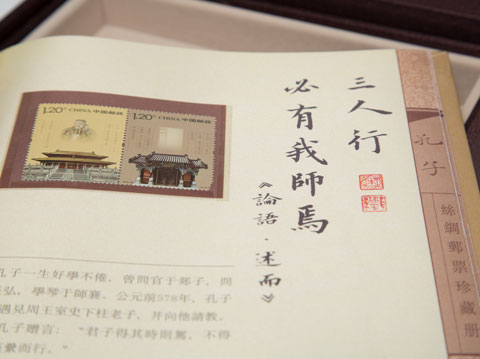 孔子
絲綢郵票珍藏册
三人行
必有我師焉
《論語·述而》
1.20 CHINA 中国邮政
1.20 CHINA 中国邮政
孔子一生好學不倦，曾問官于郯子，問
弘，學琴于師襄。公元前578年，孔子
遇見周王室史下柱老子，并向他請教。
孔子贈言：“君子得其時則駕，不得
而行。”